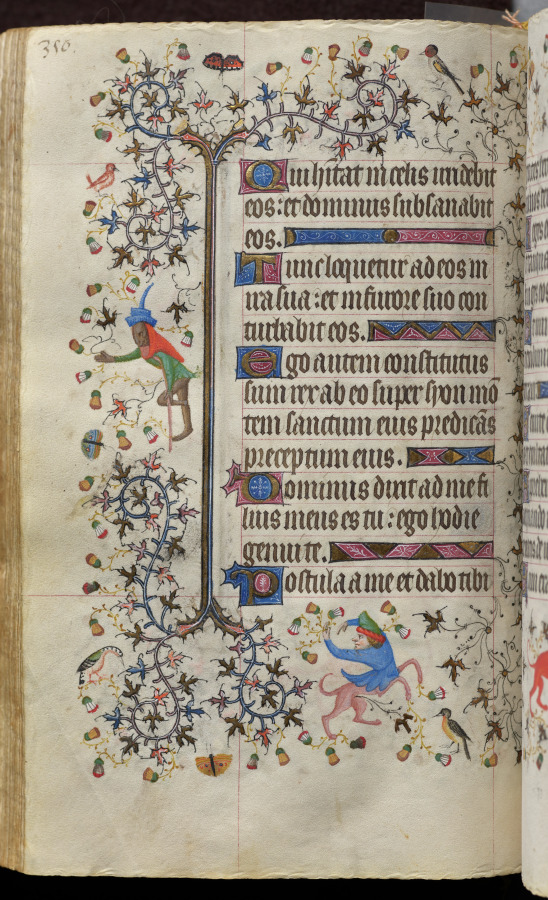 356.
Qui hitat in celis irridebit
eos: et dominus subsanabit
eos.
Tunc loquetur ad eos in
ira sua: et in furore suo con
turbabit eos.
Ego autem constitutus
sum rex ab eo super syon mō
tem sanctum eius predicās
preceptum eius.
Dominus dixit ad me fi
lius meus es tu: ego hodie
genui te.
Postula a me et dabo tibi